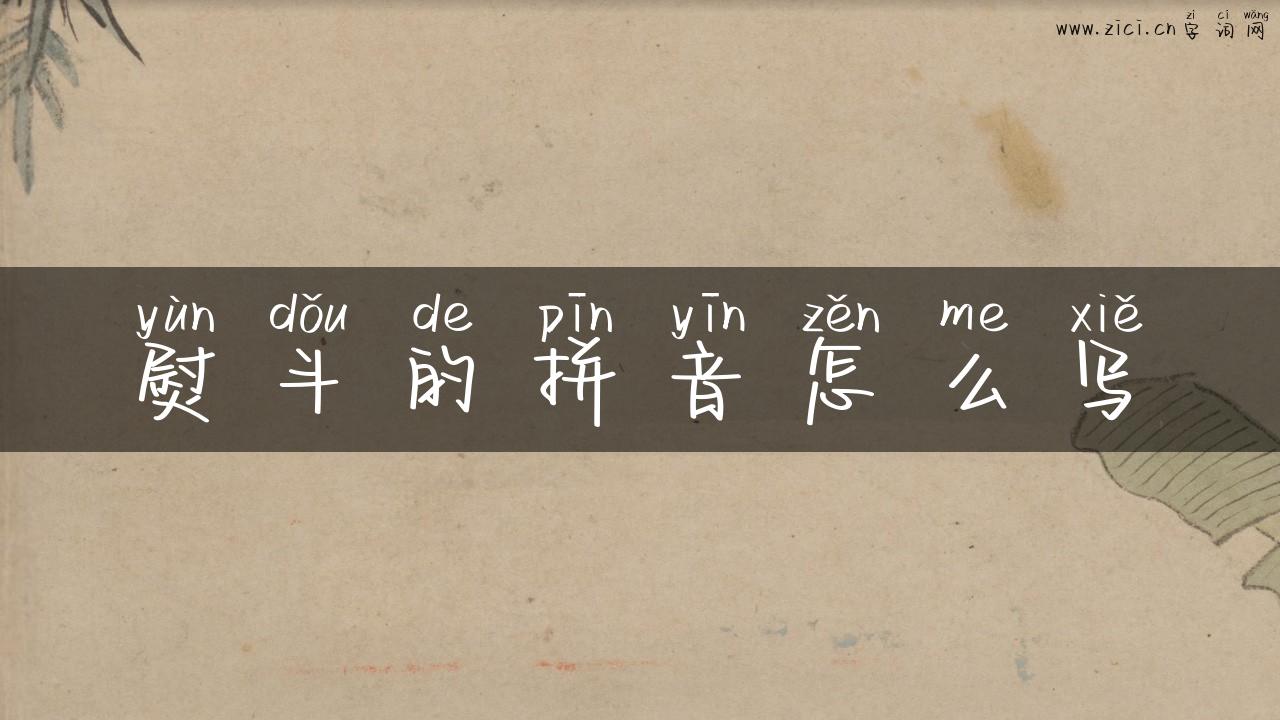 zì cí wǎng
www.zici.cn 字词网
yùn dǒu de pīn yīn zěn me xiě
熨斗的拼音怎么写